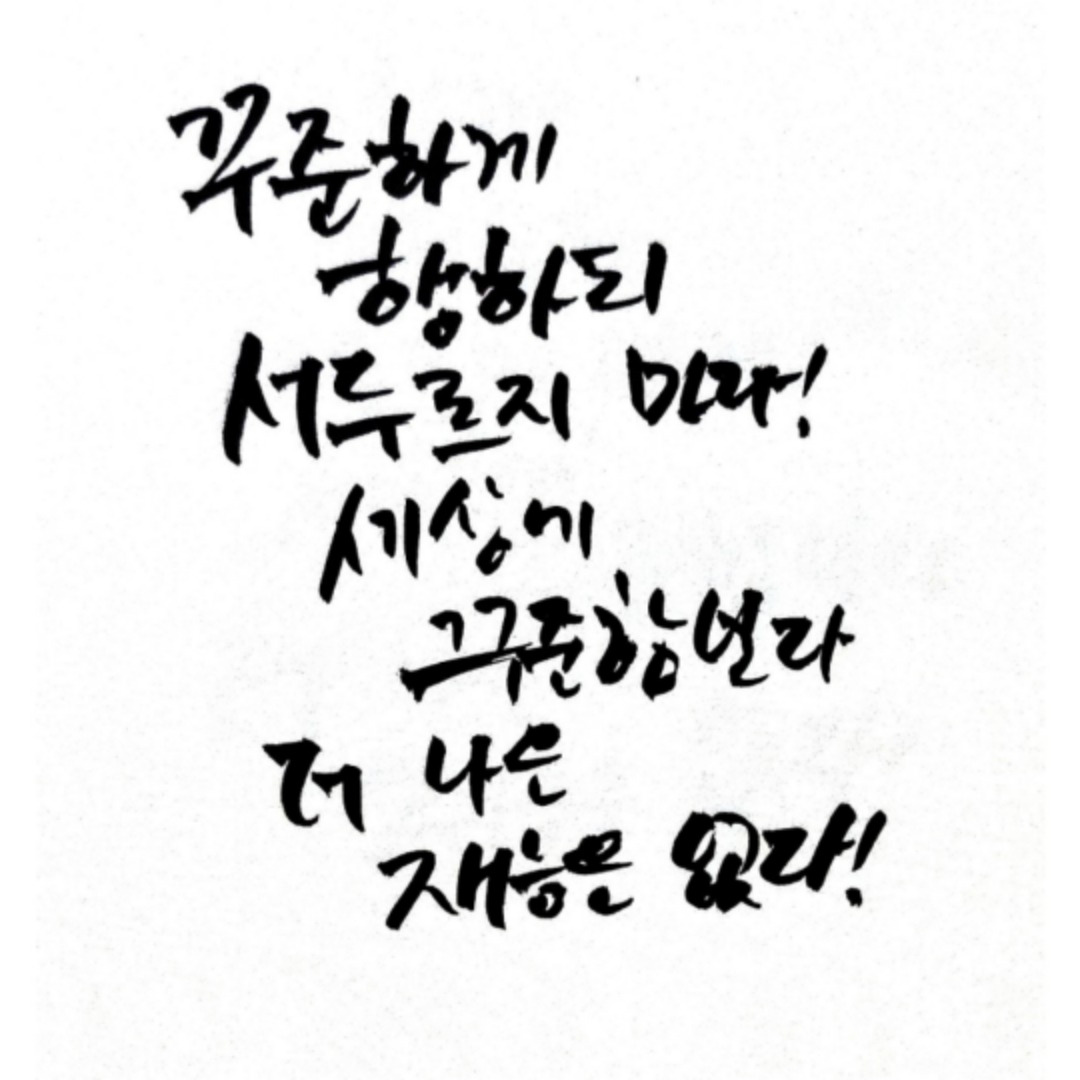 꾸준하게
행하되
서두르지 마라!
세상에
꾸준함보다
더 나은
재능은 없다!